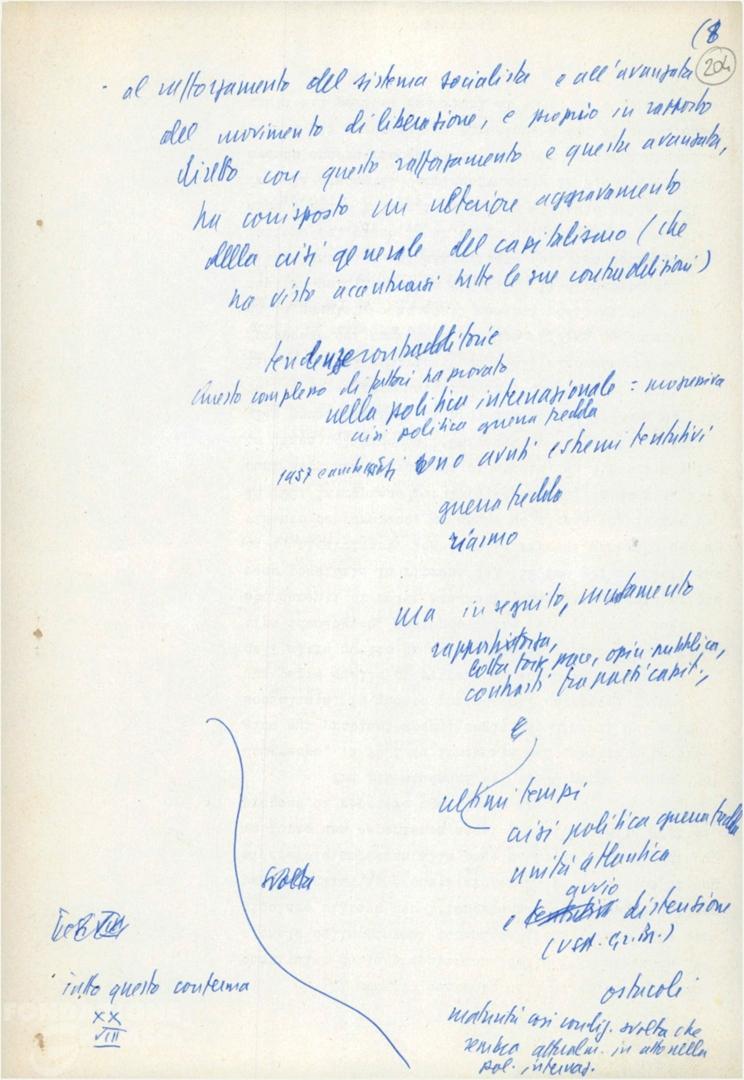 (8
204
- al rafforzamento del sistema socialista e all'avanzata
del movimento di liberazione, e proprio in rapporto
diretto con questo rafforzamento e questa avanzata,
ha corrisposto un ulteriore aggravamento
della crisi generale del capitalismo (che
ha visto accentuarsi tutte le sue contraddizioni)
tendenze contraddittorie
Questo complesso di fattori ha provocato
nella politica internazionale = progressiva
crisi politica guerra fredda
1957 si sono avuti estremi tentativi
guerra fredda
riarmo
Ma in seguito, mutamento
rapporti forza,
lotta forze pace, opin. pubblica,
contrasti fra paesi capit.,
e
ultimi tempi
crisi politica guerra fredda
unità atlantica
avvio
e distensione
(USA. G. Br.)
svolta
VIII
tutto questo conferma
XX
VIII
ostacoli
maturità così condiz. svolta che
sembra attualm. in atto nella
pol. internaz.